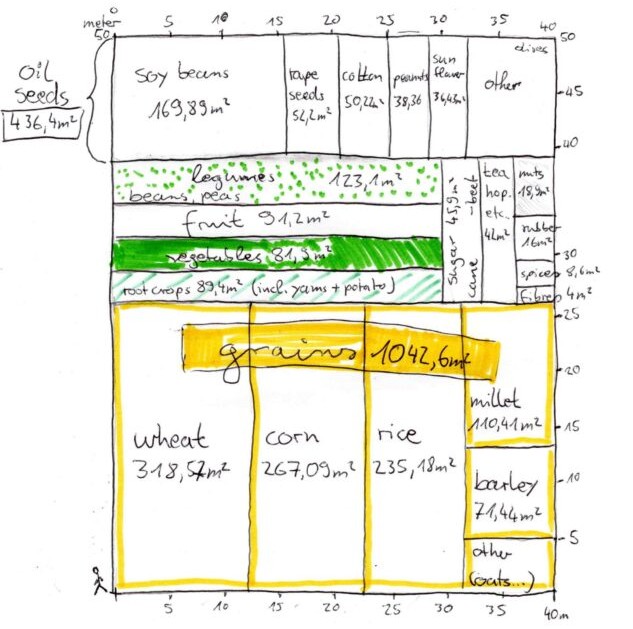 0
meter 5 10 15 20 25 30 35 40
50 50
olives
oil
seeds
436,4m²
soy beans
169,89m²
rape
seeds
52,2m²
cotton
50,22m²
peanuts
38,36
sun
flower
36,43m²
other
45
40
legumes 123,1m²
beans, peas
fruit 91,2m²
vegetables 81,9m²
root crops 89,4m² (incl. yams + potato)
sugar 45,9m²
cane -beet
tea
hop.
etc.
42m²
nuts
18,9m²
rubber
16m²
30
spices 8,6m²
fibres 4m²
25
grains 1042,6m²
20
wheat
318,57m²
corn
267,09m²
rice
235,18m²
millet
110,41m²
15
barley
71,44m²
10
5
other
(oats...)
0 5 10 15 20 25 30 35 40m